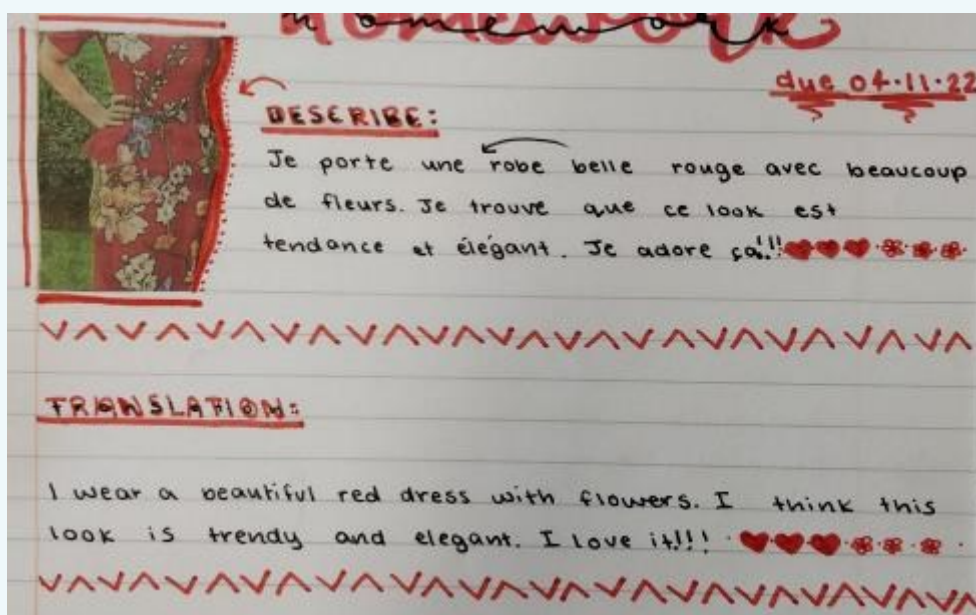 Homework
due 04.11.22
DESCRIBE:
Je porte une robe belle rouge avec beaucoup
de fleurs. Je trouve que ce look est
tendance et élégant. Je adore ça!!!
TRANSLATION:
I wear a beautiful red dress with flowers. I think this
look is trendy and elegant. I love it!!!